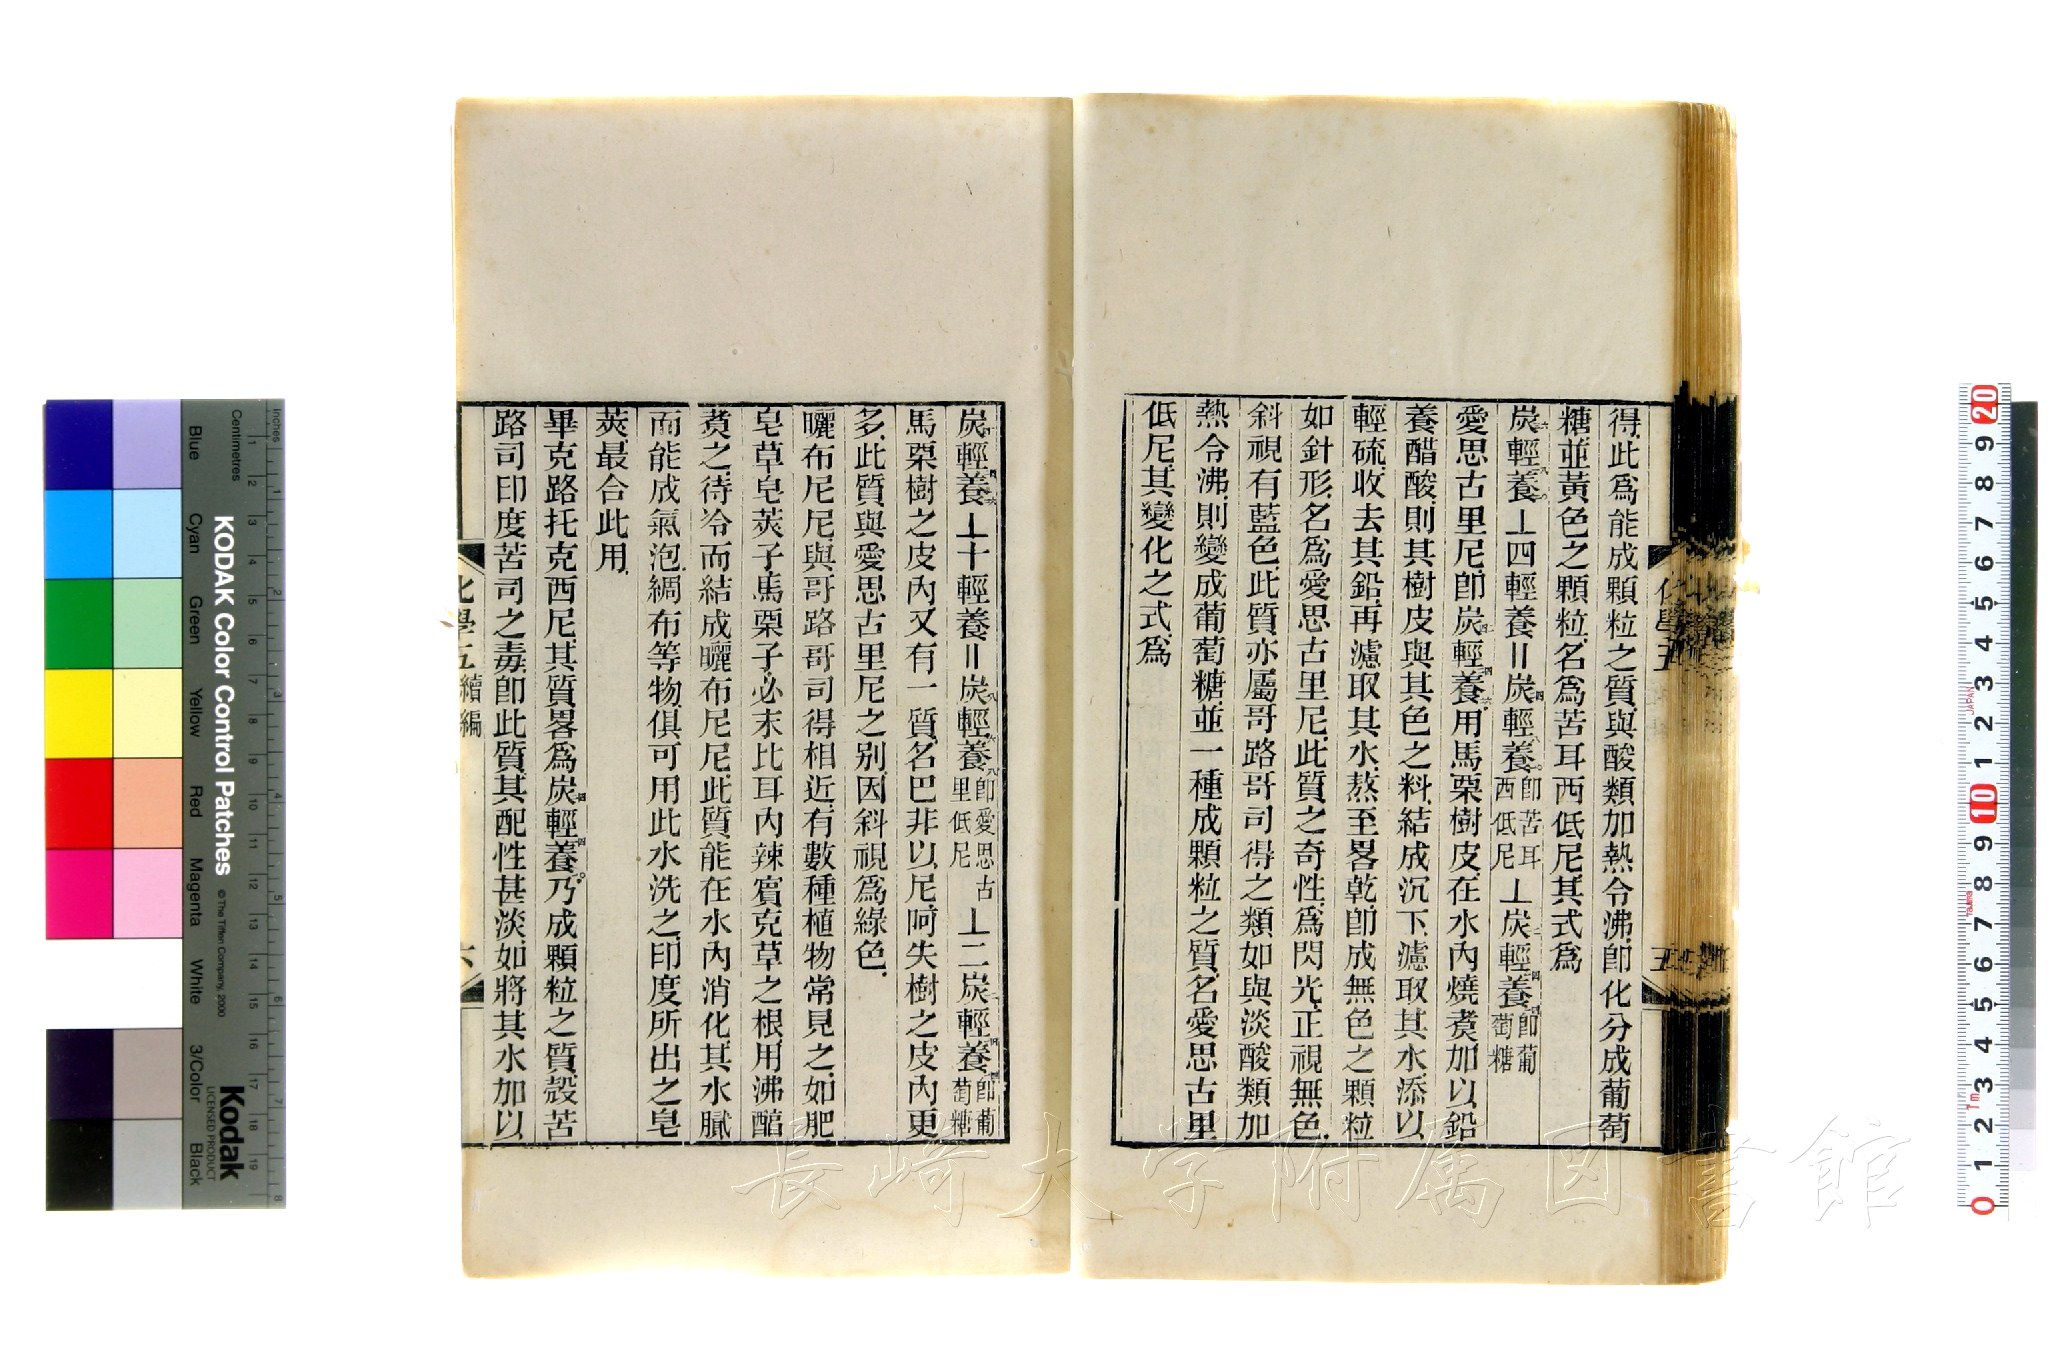 得此爲能成顆粒之質與酸類加熱令沸卽化分成葡萄
糖並黃色之顆粒名爲苦耳西低尼其式爲
炭輕養⊥四輕養॥炭輕養卽苦耳西低尼⊥炭輕養卽葡萄糖
愛思古里尼卽炭輕養用馬栗樹皮在水內燒煑加以鉛
養醋酸則其樹皮與其色之料結成沉下濾取其水添以
輕硫收去其鉛再濾取其水熬至畧乾卽成無色之顆粒
如針形名爲愛思古里尼此質之奇性爲閃光正視無色
斜視有藍色此質亦屬哥路哥司得之類如與淡酸類加
熱令沸則變成葡萄糖並一種成顆粒之質名愛思古里
低尼其變化之式爲
化學五
五
炭輕養⊥十輕養॥炭輕養卽愛思古里低尼⊥二炭輕養卽葡萄糖
馬栗樹之皮內又有一質名巴非以尼呵失樹之皮內更
多此質與愛思古里尼之別因斜視爲綠色
曬布尼尼與哥路哥司得相近有數種植物常見之如肥
皂草皂莢子馬栗子必末比耳內辣賓克草之根用沸醕
煑之待冷而結成曬布尼尼此質能在水內消化其水膩
而能成氣泡綢布等物俱可用此水洗之印度所出之皂
莢最合此用
畢克路托克西尼其質畧爲炭輕養乃成顆粒之質殼苦
路司印度苦司之毒卽此質其配性甚淡如將其水加以
化學五續編
六
長崎大学附属図書館
KODAK Color Control Patches
© The Tiffen Company, 2000
Kodak
LICENSED PRODUCT
Inches
Centimetres
Blue
Cyan
Green
Yellow
Red
Magenta
White
3/Color
Black
JAPAN